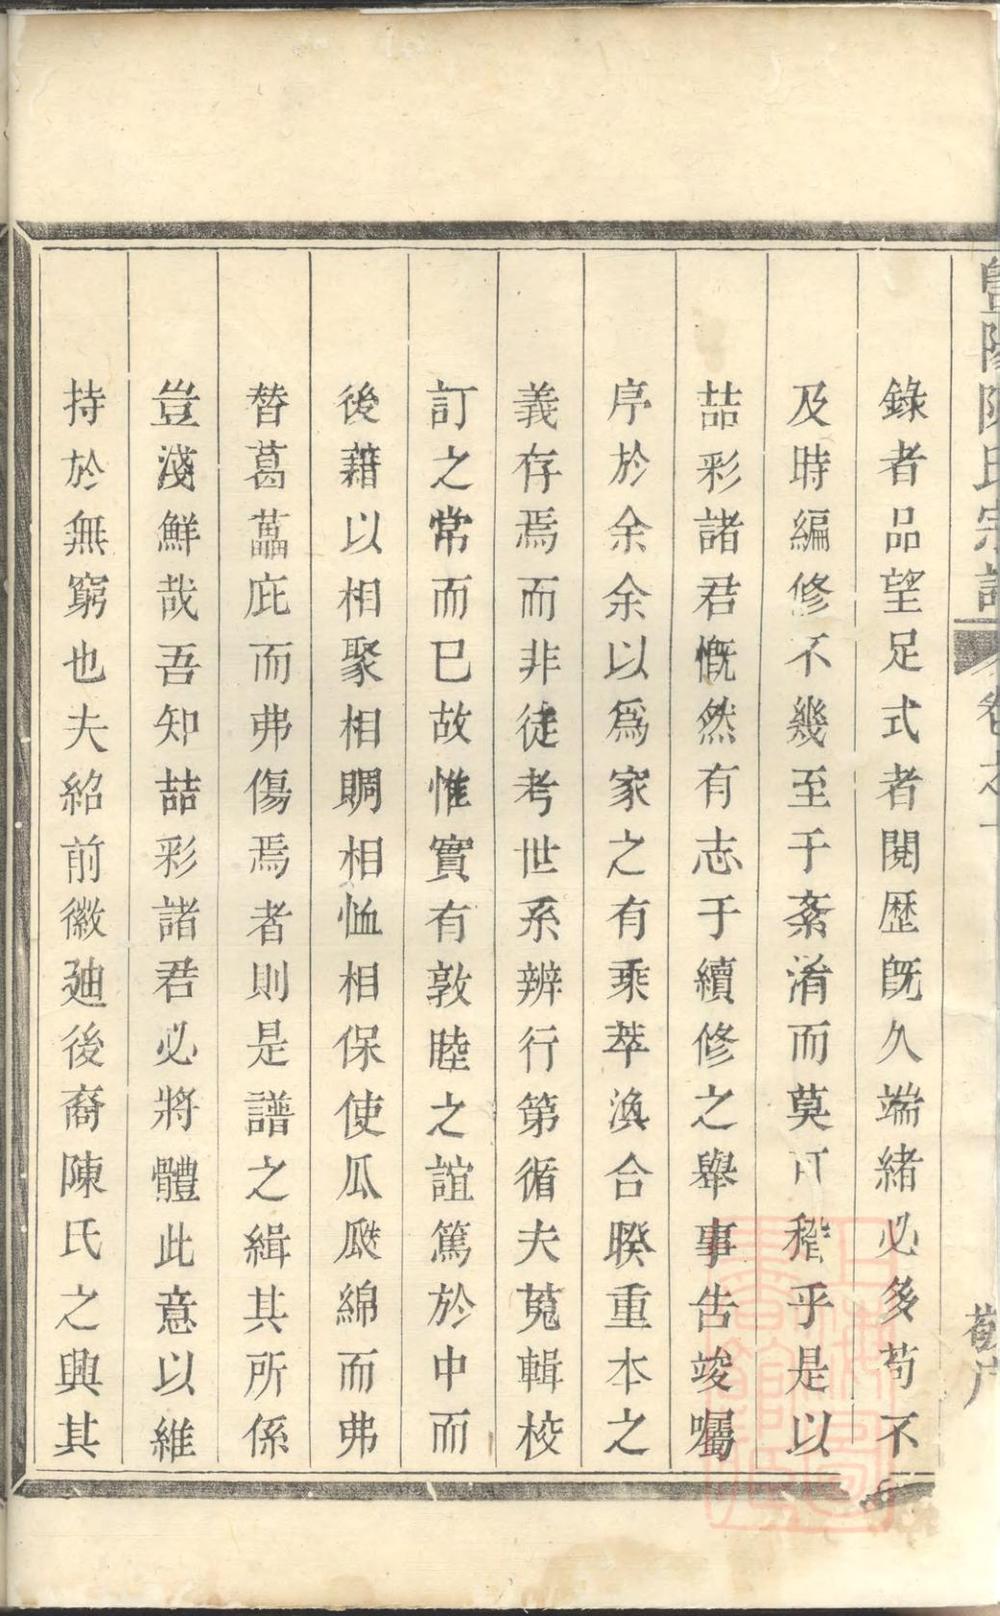 暨陽陳氏宗譜 卷之一
錄者品望足式者閱歷旣久端緒必多苟不
及時編修不幾至于紊淆而莫可稽乎是以
喆彩諸君慨然有志于續修之舉事告竣囑
序於余余以爲家之有乘萃渙合睽重本之
義存焉而非徒考世系辨行第循夫蒐輯校
訂之常而已故惟實有敦睦之誼篤於中而
後藉以相聚相賙相恤相保使瓜瓞綿綿而弗
替葛藟庇而弗傷焉者則是譜之緝其所係
豈淺鮮哉吾知喆彩諸君必將體此意以維
持於無窮也夫紹前徽廸後裔陳氏之興其